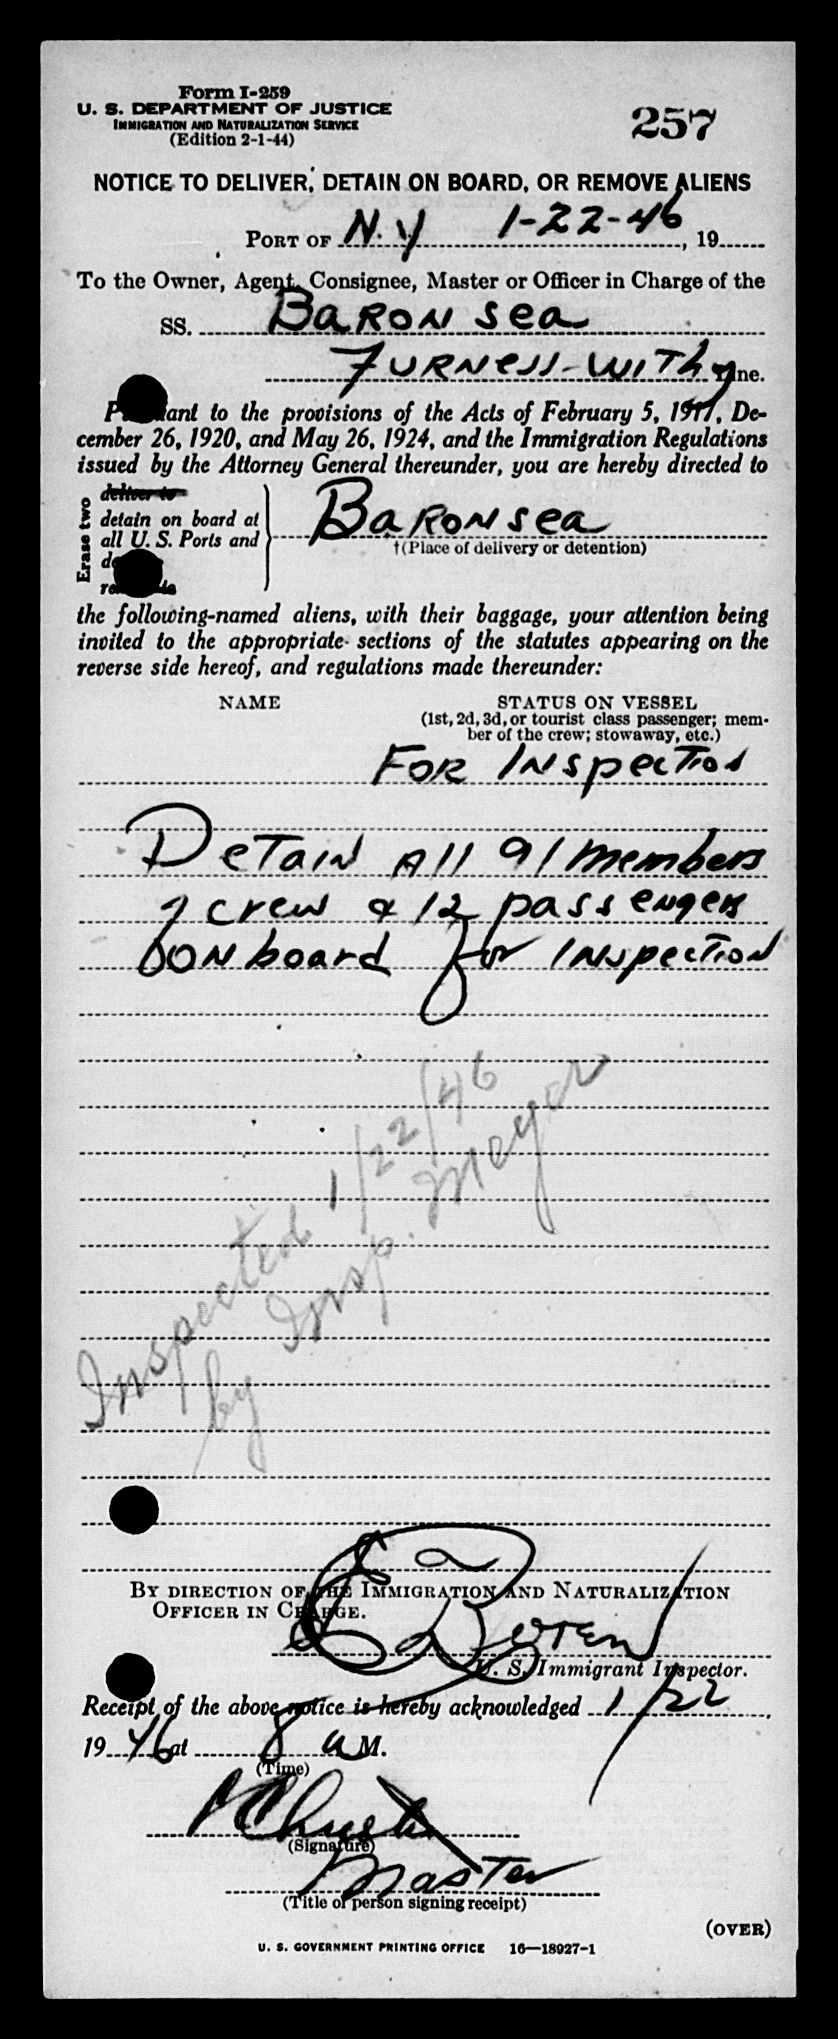 Form I-259
U. S. DEPARTMENT OF JUSTICE
IMMIGRATION AND NATURALIZATION SERVICE
(Edition 2-1-44)
257
NOTICE TO DELIVER, DETAIN ON BOARD, OR REMOVE ALIENS
PORT OF N.Y 1-22-46, 19
To the Owner, Agent, Consignee, Master or Officer in Charge of the
SS. Baron Sea
Furness-Withy Line.
Pursuant to the provisions of the Acts of February 5, 1917, De-
cember 26, 1920, and May 26, 1924, and the Immigration Regulations
issued by the Attorney General thereunder, you are hereby directed to
Erase two
deliver to
detain on board at
all U. S. Ports and
Baron sea
†(Place of delivery or detention)
the following-named aliens, with their baggage, your attention being
invited to the appropriate sections of the statutes appearing on the
reverse side hereof, and regulations made thereunder:
NAME STATUS ON VESSEL
(1st, 2d, 3d, or tourist class passenger; mem-
ber of the crew; stowaway, etc.)
For Inspection
Detain All 91 members
of crew & 12 passengers
on board for Inspection
Inspected 1/22/46
by Insp. Meyer
BY DIRECTION OF THE IMMIGRATION AND NATURALIZATION
OFFICER IN CHARGE.
U. S. Immigrant Inspector.
Receipt of the above notice is hereby acknowledged 1/22,
19 46 at 8 a M.
(Time)
(Signature)
Master
(Title of person signing receipt)
(OVER)
U. S. GOVERNMENT PRINTING OFFICE 16—18927-1